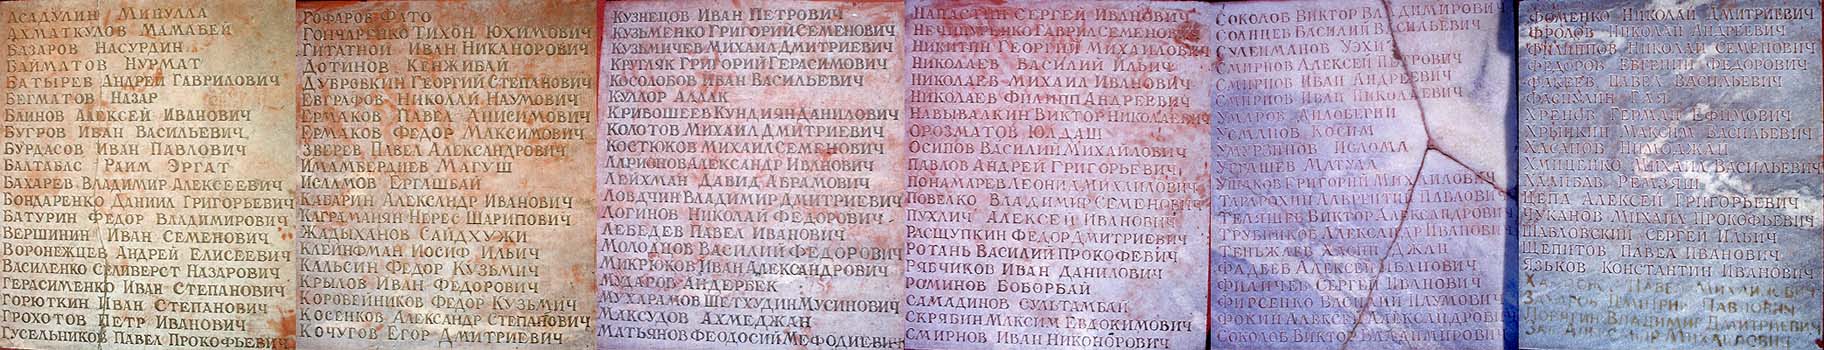 Асадулин Минулла
Ахматкулов Мамабей
Базаров Насурдин
Байматов Нурмат
Батырев Андрей Гаврилович
Бегматов Назар
Блинов Алексей Иванович
Бугров Иван Васильевич
Бурдасов Иван Павлович
Балтабас Раим Эргат
Бахарев Владимир Алексеевич
Бондаренко Даниил Григорьевич
Батурин Федор Владимирович
Вершинин Иван Семенович
Воронежцев Андрей Елисеевич
Василенко Селиверст Назарович
Герасименко Иван Степанович
Горюткин Иван Степанович
Грохотов Петр Иванович
Гусельников Павел Прокофьевич
Гофаров Фато
Гончаренко Тихон Юхимович
Гитатной Иван Никанорович
Дотинов Кенжибай
Дубровкин Георгий Степанович
Евграфов Николай Наумович
Ермаков Павел Анисимович
Ермаков Федор Максимович
Зверев Павел Александрович
Имамбердиев Магуш
Исламов Ергашбай
Кабарин Александр Иванович
Каграманян Нерес Шарипович
Жадыханов Сайдхужи
Клейнфман Иосиф Ильич
Кальсин Федор Кузьмич
Крылов Иван Федорович
Коровейников Федор Кузьмич
Косенков Александр Степанович
Кочугов Егор Дмитриевич
Кузнецов Иван Петрович
Кузьменко Григорий Семенович
Кузьмичев Михаил Дмитриевич
Кругляк Григорий Герасимович
Косолобов Иван Васильевич
Куллор Аллак
Кривошеев Кундиян Данилович
Колотов Михаил Дмитриевич
Костюков Михаил Семенович
Ларионов Александр Иванович
Лейхман Давид Абрамович
Ловдчин Владимир Дмитриевич
Логинов Николай Федорович
Лебедев Павел Иванович
Молоднов Василий Федорович
Микрюков Иван Александрович
Мударов Андербек
Мухарамов Шетхудин Мусинович
Максудов Ахмеджан
Матьянов Феодосий Мефодиевич
Напастин Сергей Иванович
Нечипуренко Гаврил Семенович
Никитин Георгий Михайлович
Николаев Василий Ильич
Николаев Михаил Иванович
Николаев Филипп Андреевич
Навывалкин Виктор Николаевич
Орозматов Юлдаш
Осипов Василий Михайлович
Павлов Андрей Григорьевич
Понамарев Леонид Михайлович
Повелко Владимир Семенович
Пухлич Алексей Иванович
Расщупкин Федор Дмитриевич
Ротань Василий Прокофевич
Рябчиков Иван Данилович
Роминов Боборбай
Самадинов Сультамбай
Скрябин Максим Евдокимович
Смирнов Иван Никонорович
Соколов Виктор Владимирович
Солнцев Василий Васильевич
Сулейманов Уэхи
Смирнов Алексей Петрович
Смирнов Иван Андреевич
Смирнов Иван Николаевич
Умаров Дилоберий
Усманов Косим
Умурзинов Ислома
Уташев Матула
Ушаков Григорий Михайлович
Лаврентий Павлович
Телянцев Виктор Александрович
Трубников Александр Иванович
Тенъжаев Джан
Фадеев Алексей Иванович
Филичев Сергей Иванович
Фирсенко Василий Наумович
Фокин Алексей Александрович
Соколов Виктор Владимирович
Фоменко Николай Дмитриевич
Фролов Николай Андреевич
Филиппов Николай Семенович
Федоров Евгений Федорович
Факеев Павел Васильевич
Фаспулин Гая
Хренов Герман Ефимович
Хрыикин Максим Васильевич
Хасанов Нимоджан
Хмиценко Михаил Васильевич
Халибав Ремзяш
Цепа Алексей Григорьевич
Чуканов Михаил Прокофьевич
Шавловский Сергей Ильич
Щепитов Павел Иванович
Язьков Константин Иванович
Павел Михайлевич
Захаров Дмитрий Павлович
Владимир Дмитриевич
Михайлович